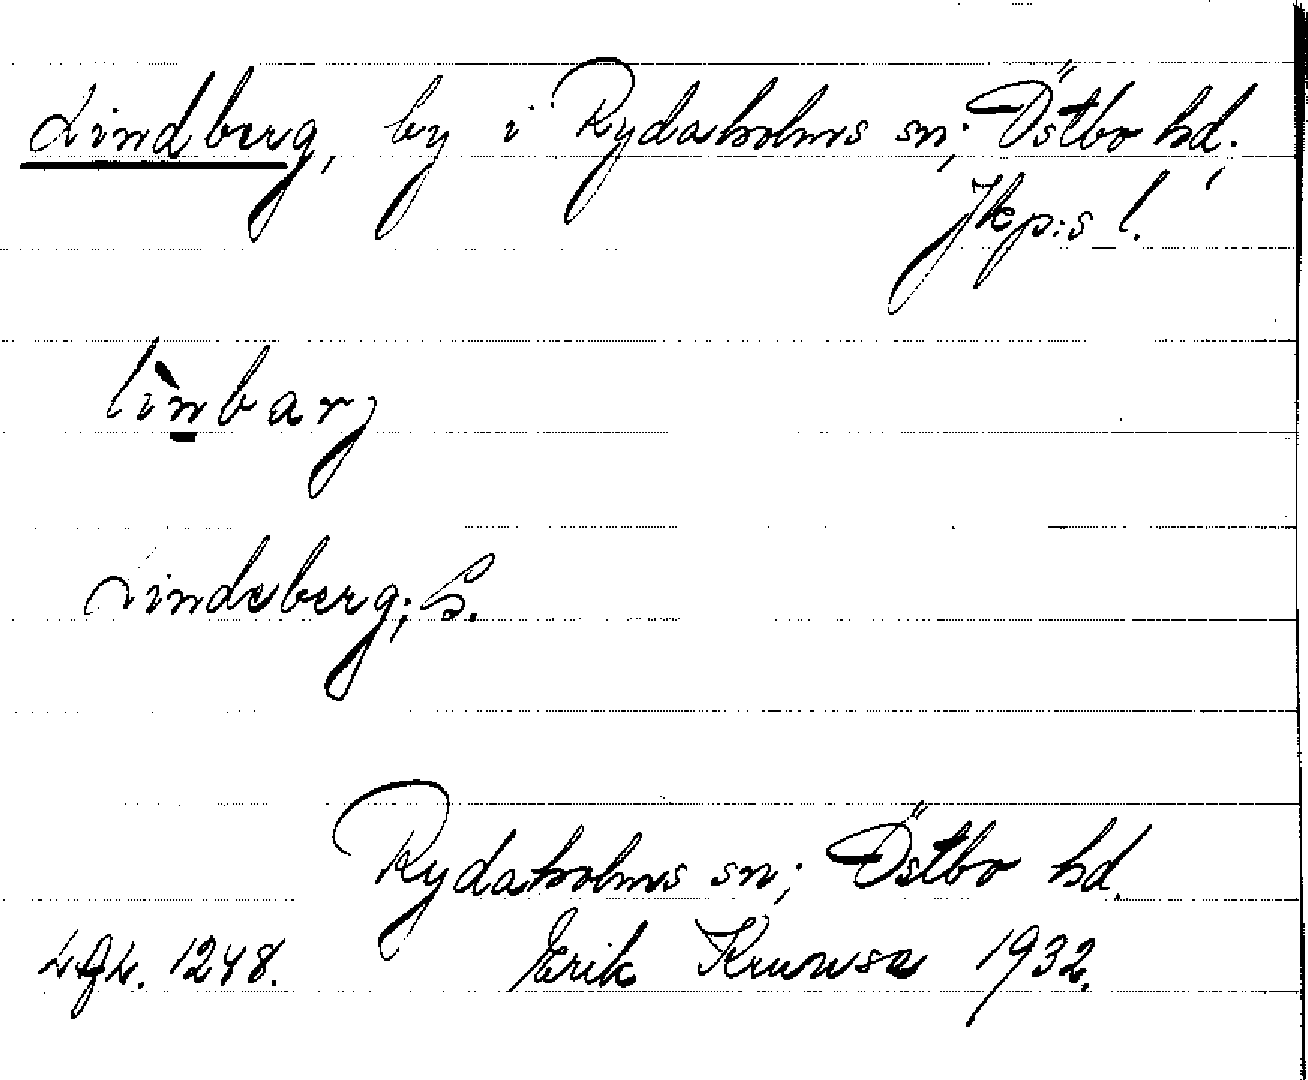 Lindberg, by i Rydaholms sn; Östbo hd.,
Jkp:s l.
lìnbarj
Lindeberg; G.
Rydaholms sn; Östbo hd.
1248. Erik Kruusa 1932.